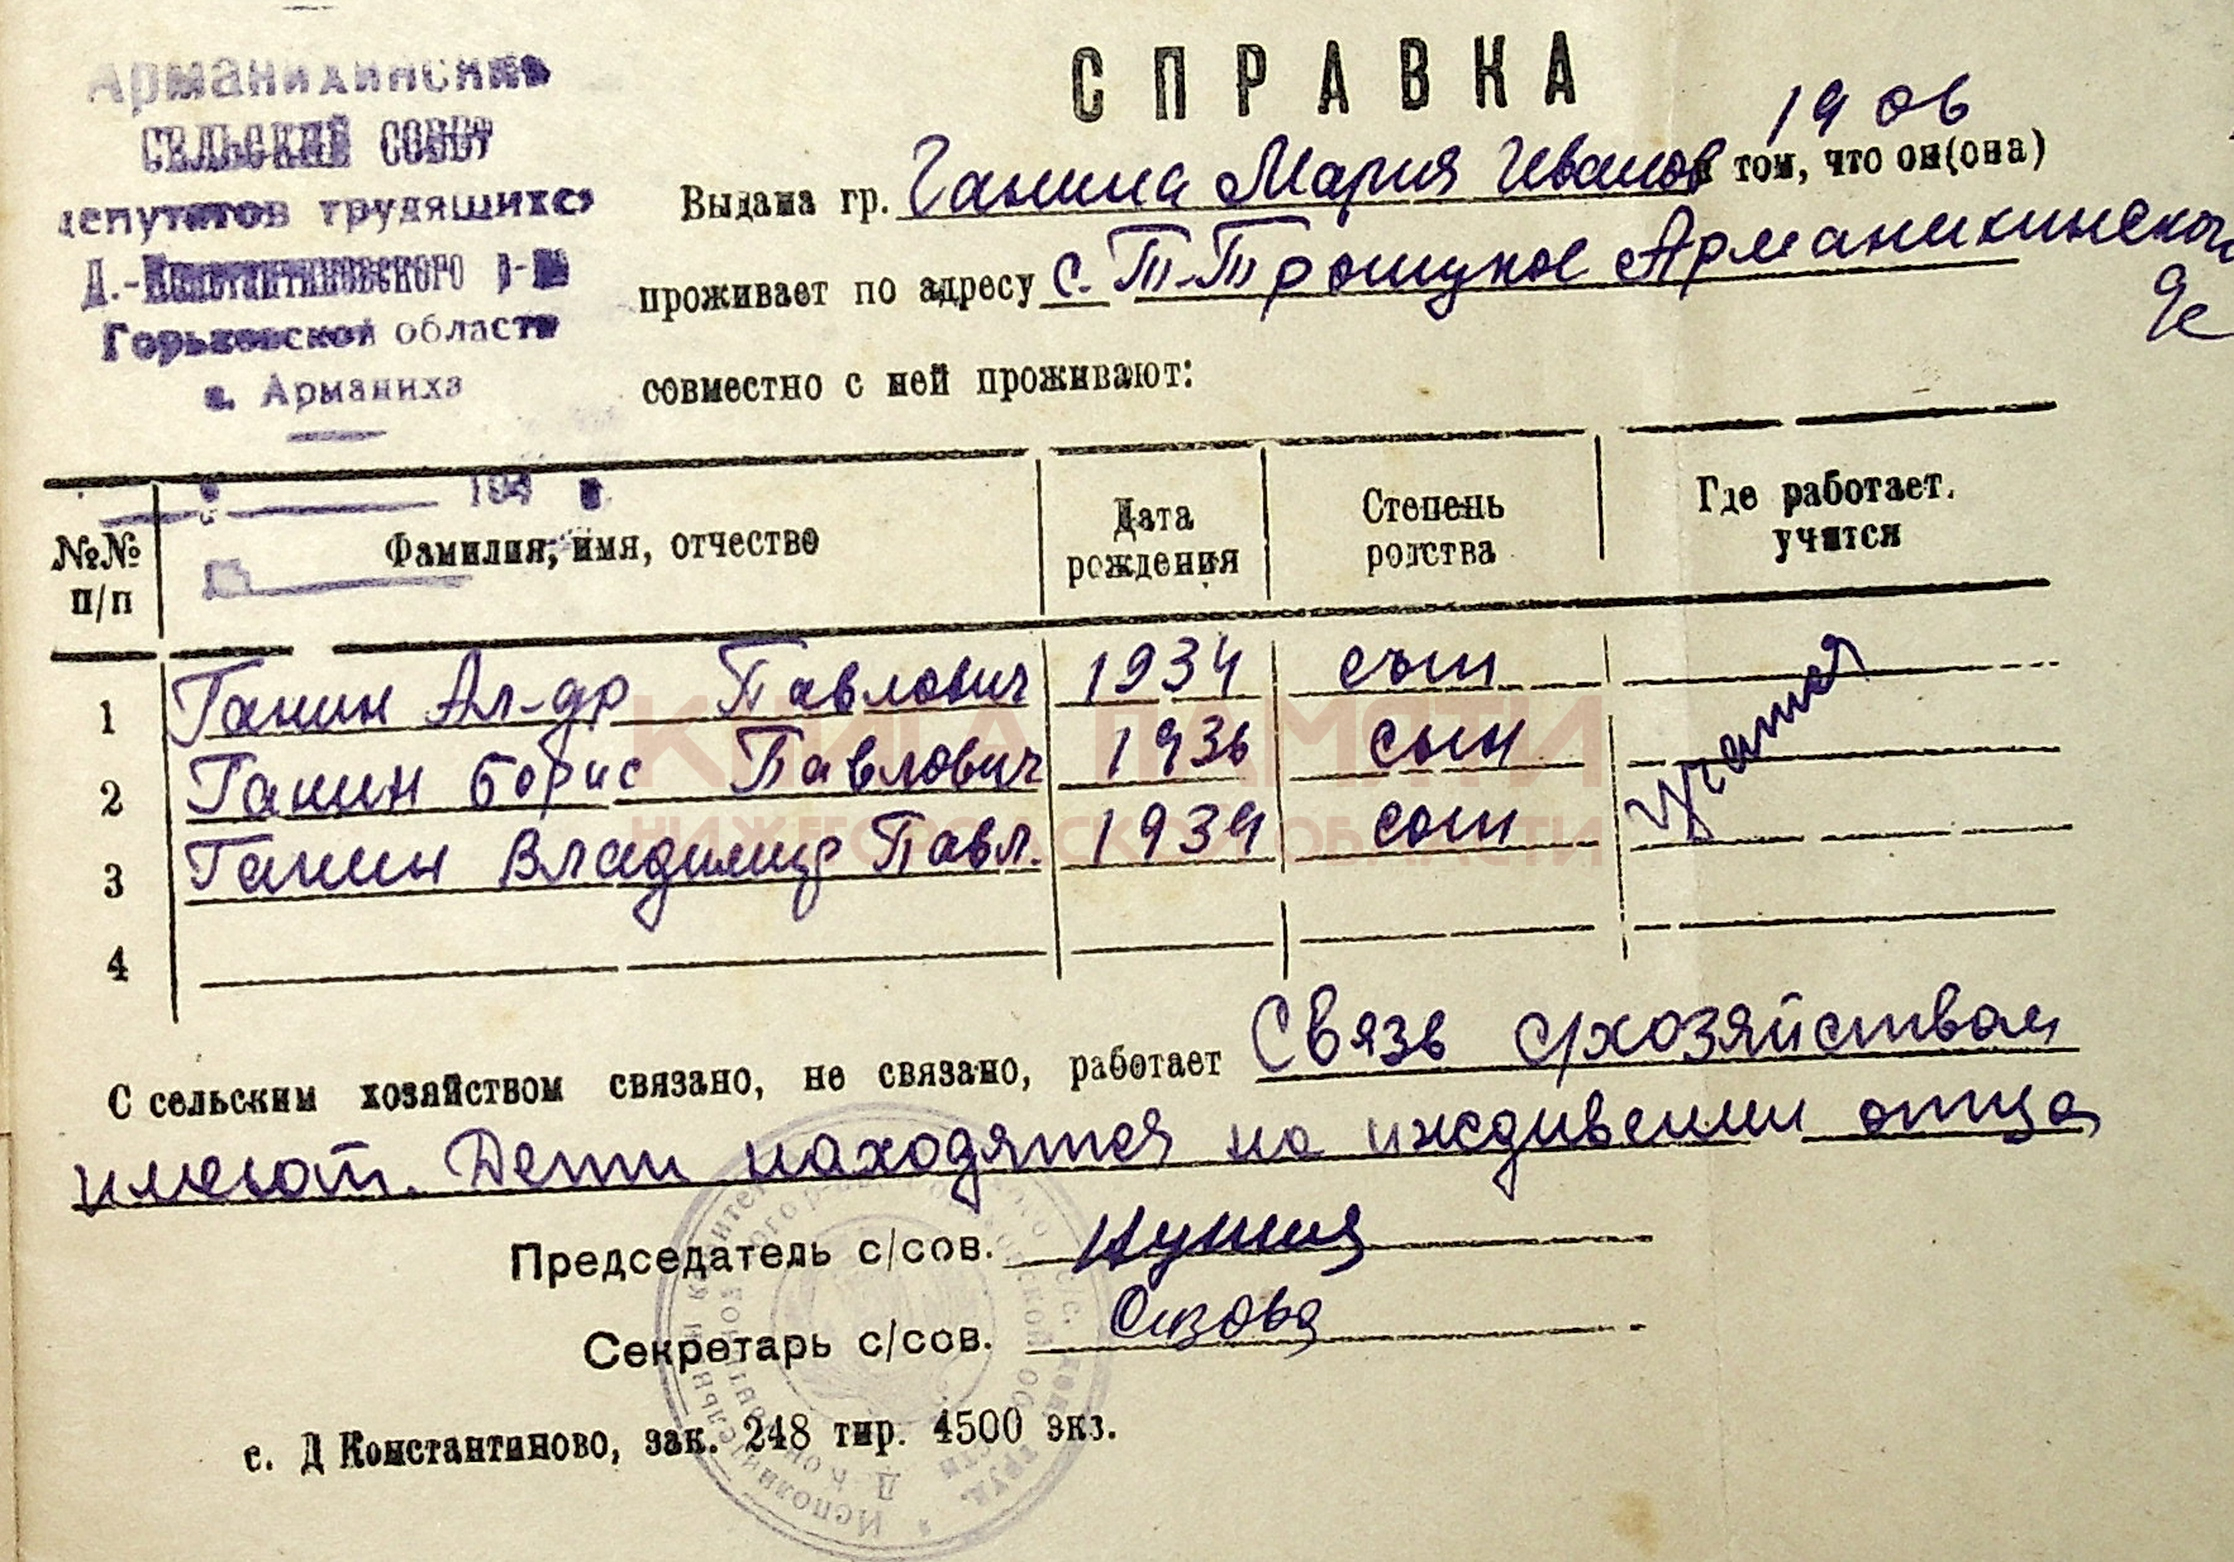 Арманихинский
СЕЛЬСКИЙ СОВЕТ
депутатов трудящихся
Д.-Константиновского р-на
Горьковской области
с. Арманиха
194 г.
СПРАВКА
1906
Выдана гр. Ганина Мария Иванов в том, что он(она)
проживает по адресу с. Т-Трошкуное Арманихинского
совместно с ней проживают:
№№ п/п Фамилия, имя, отчество Дата рождения Степень родства Где работает, учится
1 Ганин Ал-др Павлович 1934 сын
2 Ганин Борис Павлович 1936 сын учатся
3 Ганин Владимир Павл. 1939 сын
4
КНИГА ПАМЯТИ
НИЖЕГОРОДСКОЙ ОБЛАСТИ
С сельским хозяйством связано, не связано, работает Связь с/хозяйством
имеют. Дети находятся на иждивении отца
Председатель с/сов.
Секретарь с/сов. Сизова
с. Д Константиново, зак. 248 тир. 4500 экз.